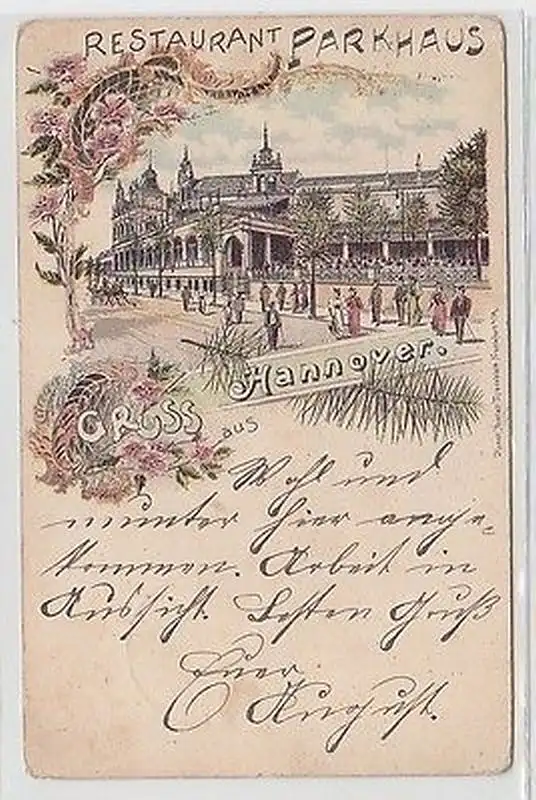 RESTAURANT PARKHAUS
Hannover.
GRUSS aus
Wohl und
munter hier ange-
kommen. Arbeit in
Aussicht. Besten Gruß
Euer
August.